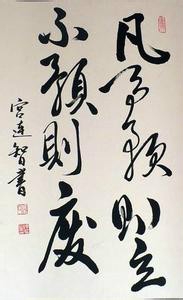 凡事預則立
不預則廢
宫達智書